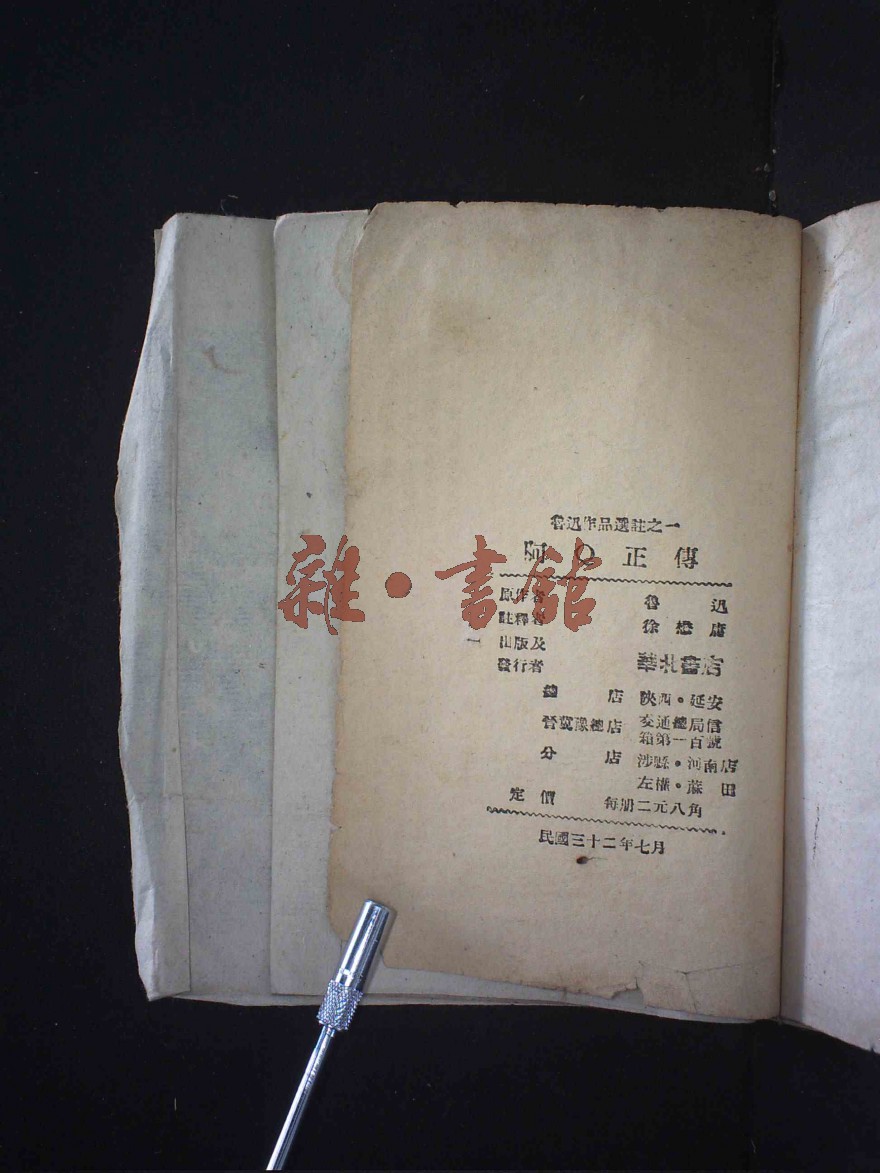 魯迅作品選註之一
阿Q正傳
原作者 魯迅
註釋者 徐懋庸
出版及
發行者 華北書店
總店 陝西·延安
晉冀豫總店 交通總局信
箱第一百號
分店 涉縣·河南店
左權·蔴田
定價 每册二元八角
民國三十二年七月
雜·書館